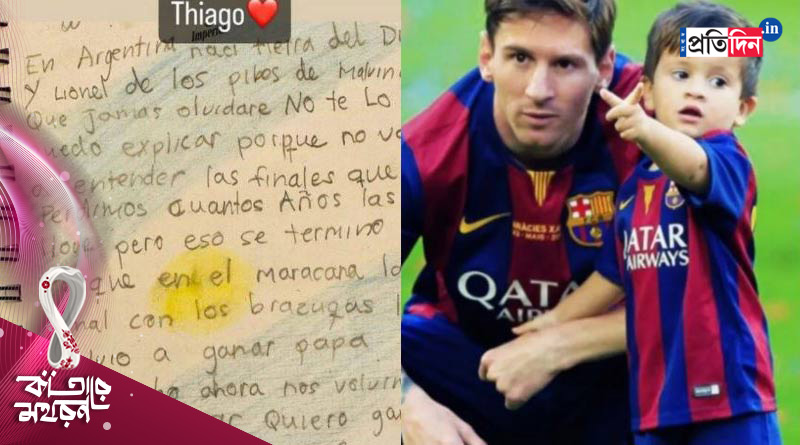 Thiago❤️
En Argentina naci tierra del Di
y Lionel de los pibes de Malvin
Que jamas olvidare No te lo
uedo explicar porque no va
a entender las finales que
Perdimos cuantos Años las
llore pero eso se termino
que en el maracana la
nal con los brazucas
a ganar papa
ahora nos volvim
Quiero ga
কাতারে
মহারণ
সংবাদ
প্রতিদিন
.in
QATAR
AIRWAYS
QATAR